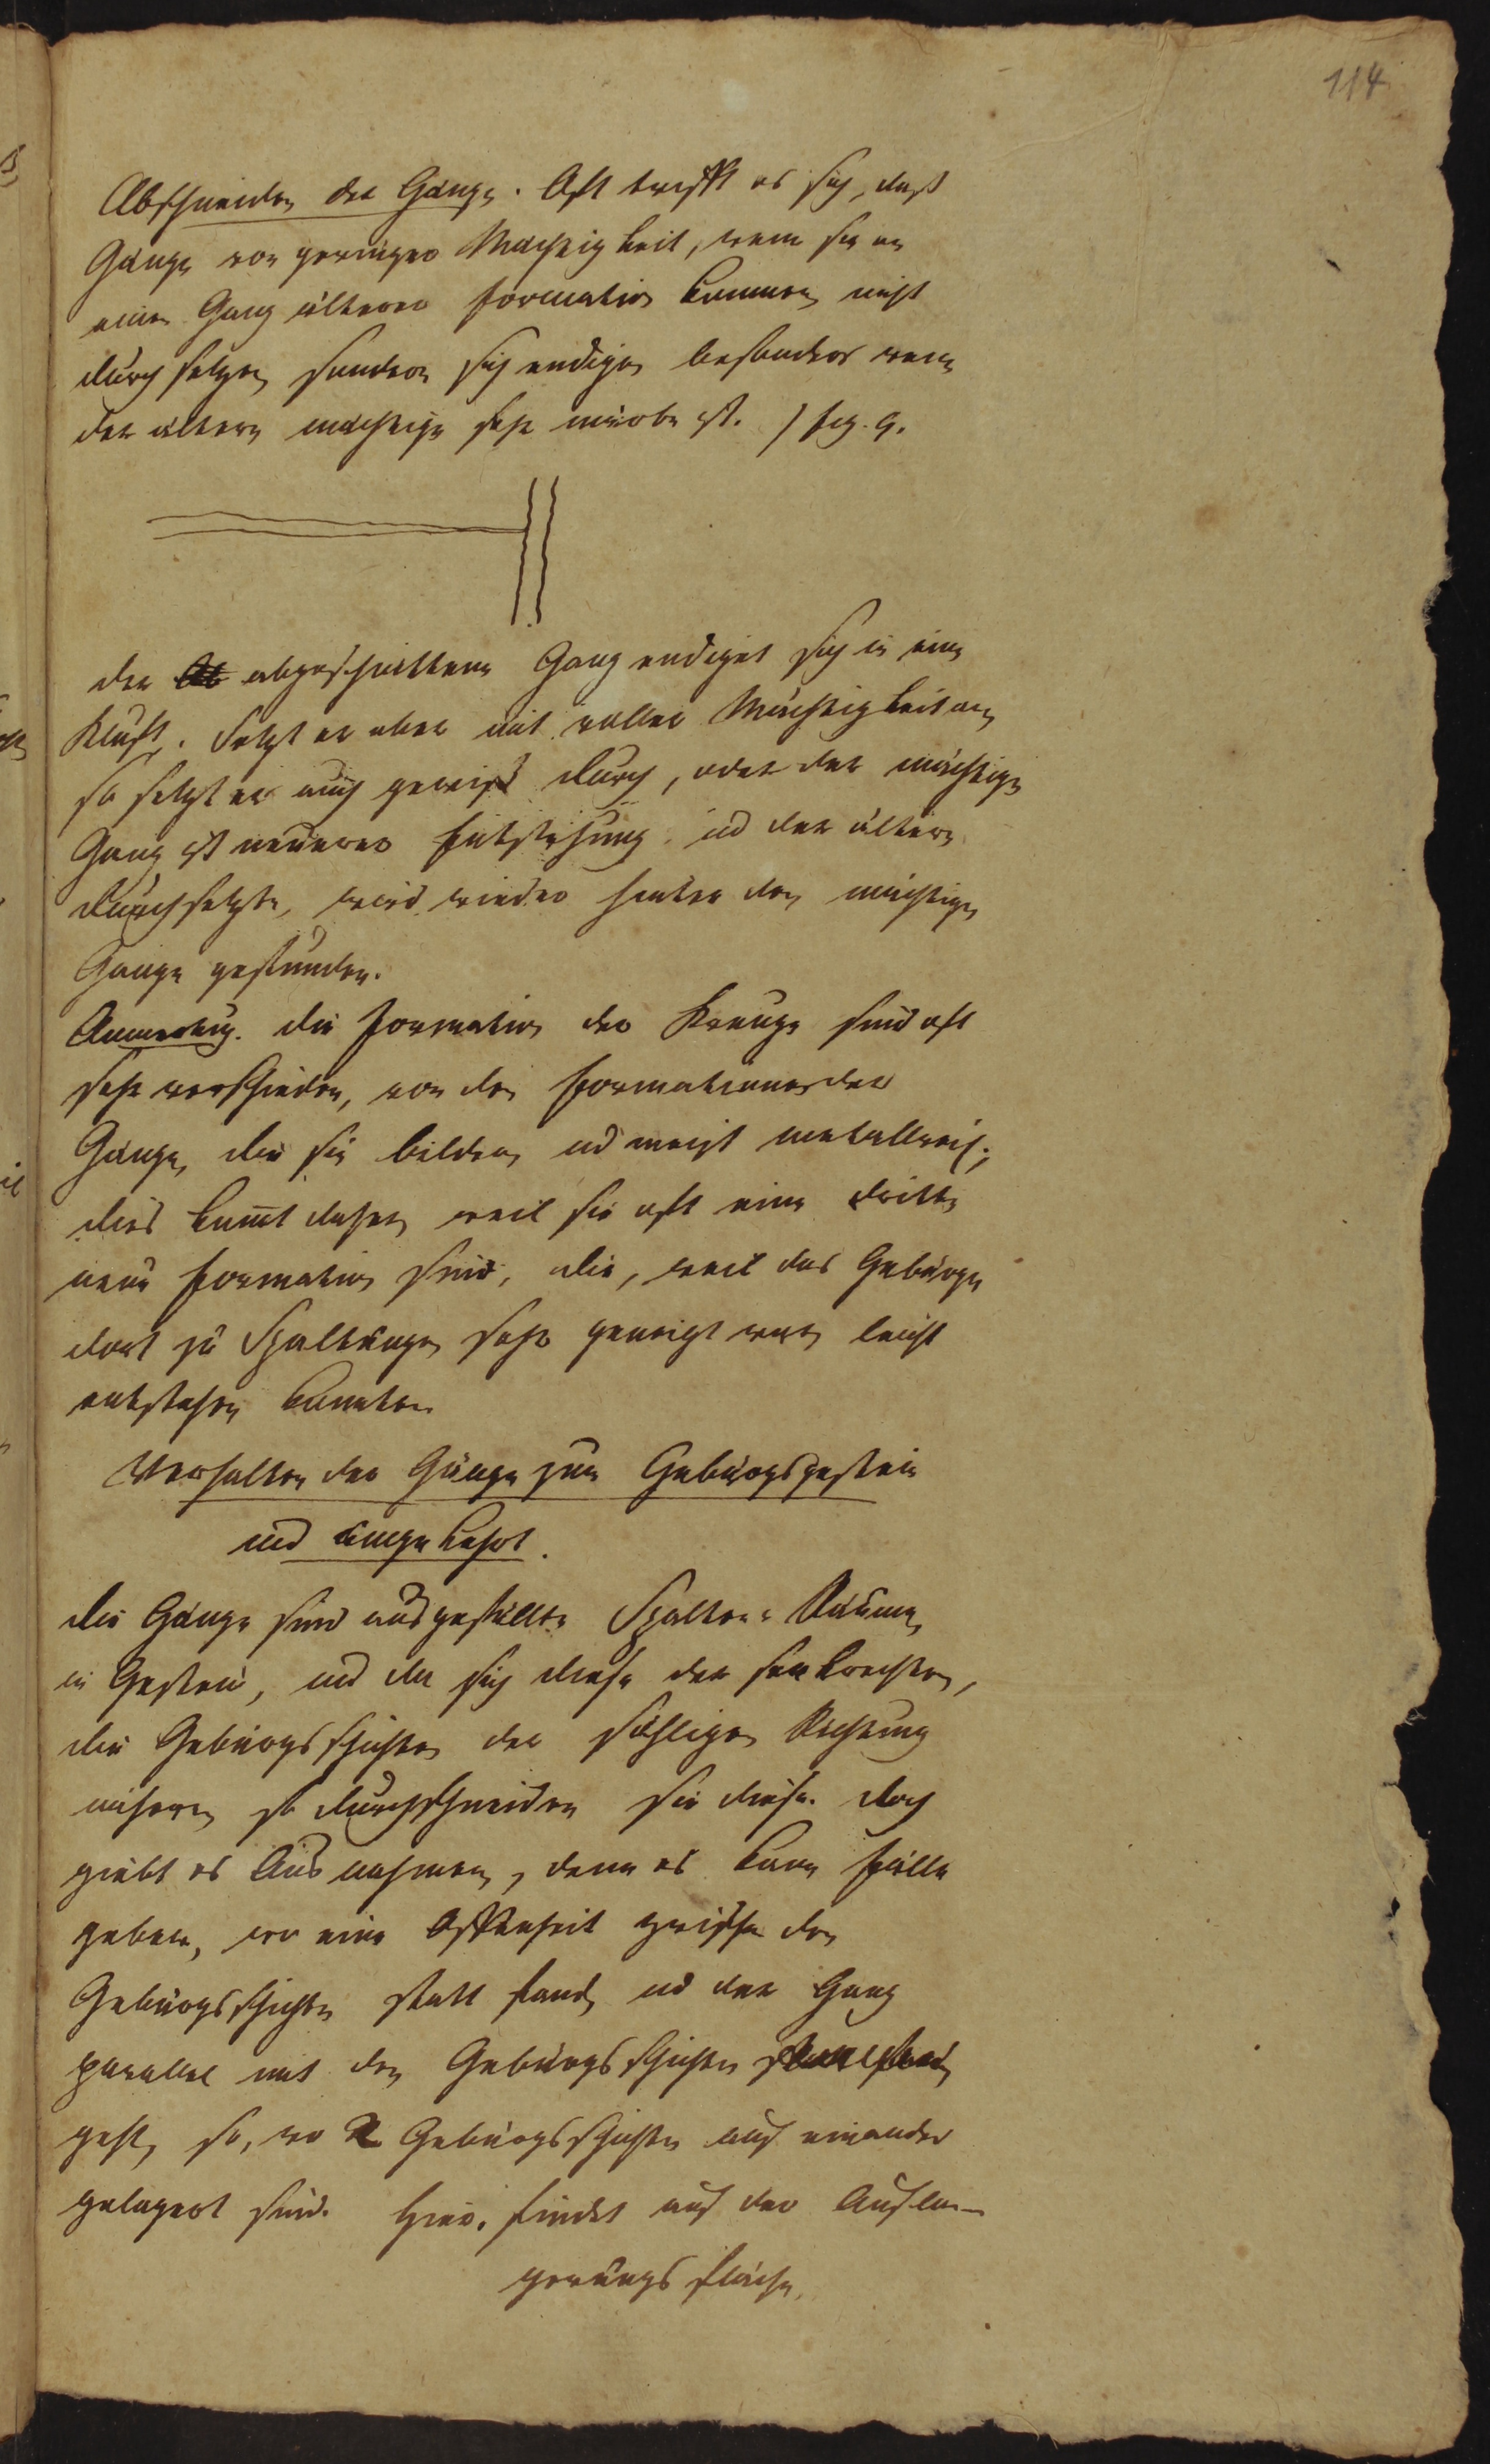 114
Abschneiden der Gänge. Oft trifft es sich, daß
Gänge von geringer Mächtigkeit, wenn sie an
einen Gang älterer Formation kommen, nicht
durchsetzen, sondern sich endigen besonders wenn
der ältere mächtige sehr mürbe ist. / fig. 9.
der abgeschnittene Gang endiget sich in eine
Kluft. Setzt er aber mit voller Mächtigkeit an,
so setzt er auch gewiß durch, oder der mächtige
Gang ist neuerer Entstehung, und der ältere
durchsetzte, wird wieder hinter dem mächtigen
Gange gefunden.
Anmerkung. die Formation der Kreuze sind oft
sehr verschieden, von den Formationen der
Gänge, die sie bilden, und meist metallreich;
dies kommt daher, weil sie oft eine dritte
neue Formation sind, die, weil das Gebürge
dort zu Spaltungen sehr geneigt war, leicht
entstehen konnten
Verhalten der Gänge zum Gebürgsgestein
und umgekehrt.
die Gänge sind ausgefüllte Spalten-Räume,
im Gestein, und da sich diese der senkrechten,
die Gebürgsschichten der söhligen Richtung
nähern, so durchschneiden sie diese. doch
giebt es Ausnahmen, denn es kann Fälle
geben, wo eine Offenheit zwischen den
Gebürgsschichten statt fand, und der Gang
parallel mit den Gebürgsschichten
geht, so, wo 2 Gebürgsschichten auf einander
gelagert sind. Hier, findet auf der Aufla-
gerungs fläche,